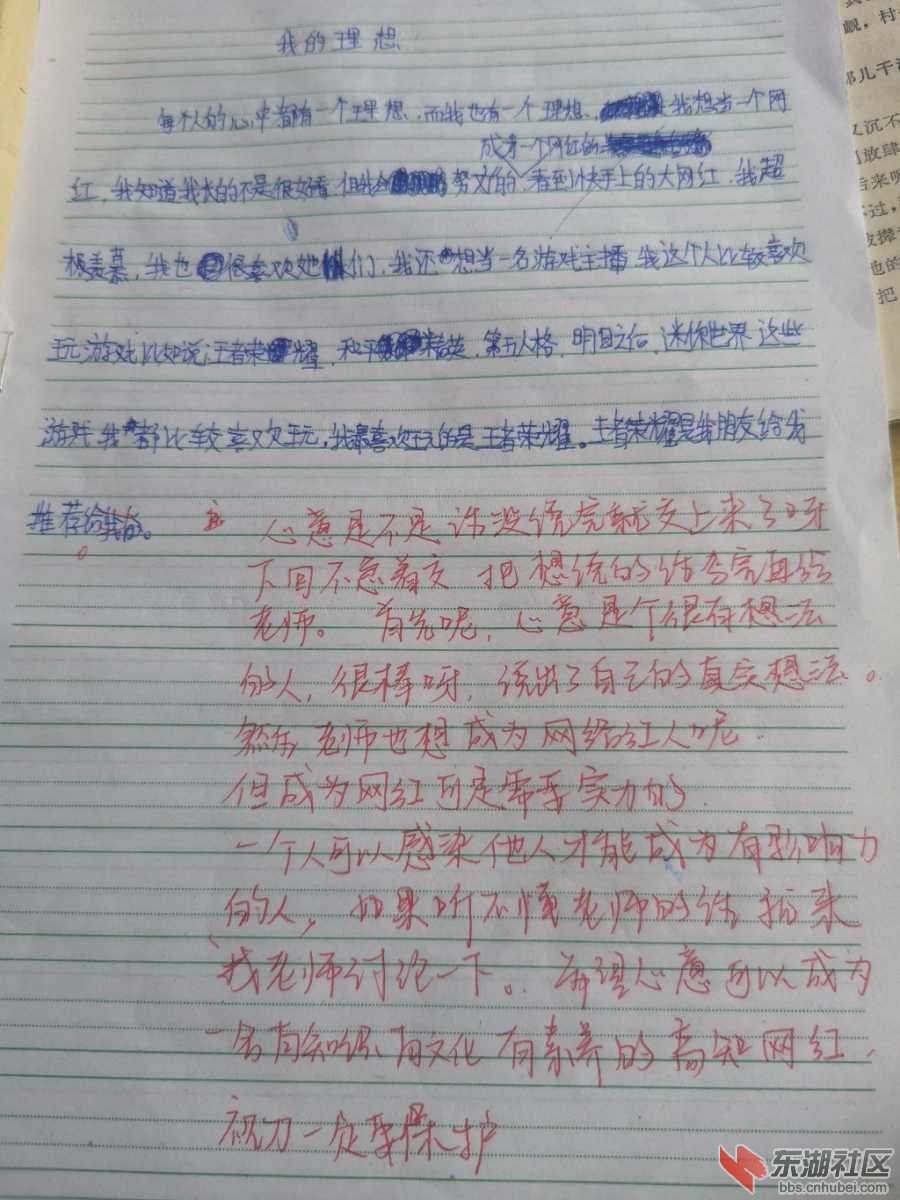 我的理想
每个人的心中都有一个理想，而我也有一个理想，我想当一个网
成为一个网红的
红，我知道我长的不是很好看，但我会努力的，看到快手上的大网红，我超
极羡慕，我也很喜欢她们，我还想当一名游戏主播，我这个人比较喜欢
玩游戏比如说：王者荣耀，和平精英，第五人格，明日之后，迷你世界这些
游戏，我都比较喜欢玩，我最喜欢玩的是王者荣耀。王者荣耀是我朋友给我
推荐给我的。
心意是不是话没说完就交上来了呀
下回不急着交 把想说的话写完再给
老师。 首先呢，心意是个很有想法
的人，很棒呀，说出了自己的真实想法。
然后 老师也想成为网络红人呢.
但成为网红可是需要实力的.
一个人可以感染他人才能成为有影响力
的人，如果听不懂老师的话 后来
找老师讨论一下。希望心意可以成为
一名有知识 有文化 有素养的高知网红.
视力一定要保护
觇，村
那儿干
又沉不
放肆
后来呢
过，
被撵
也的
把
东湖社区
bbs.cnhubei.com